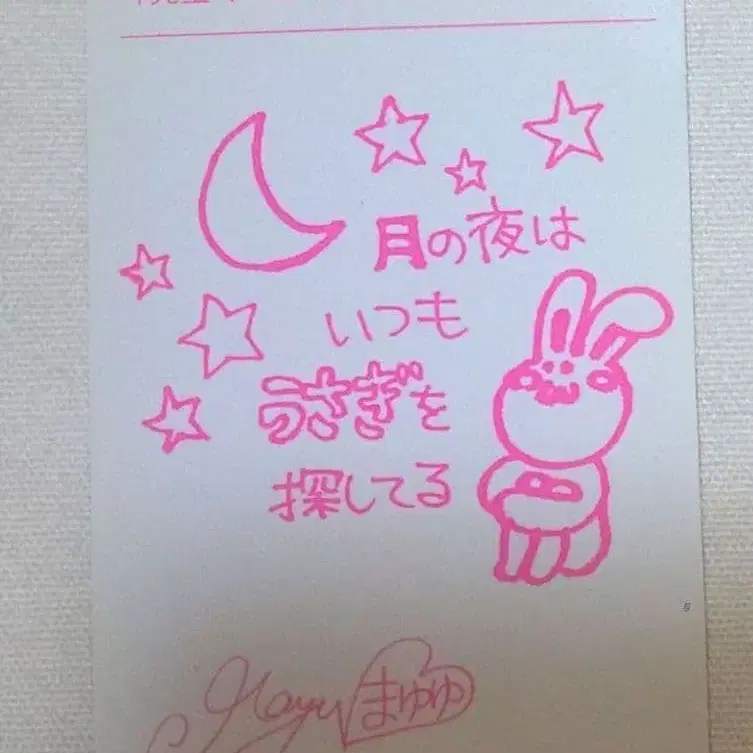 月の夜は
いつも
うさぎを
探してる
Mayu まゆゆ